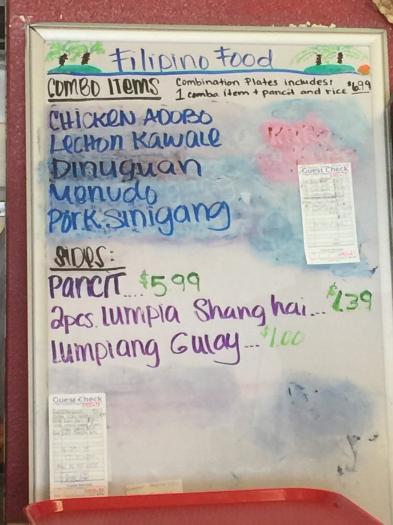 Filipino Food
Combo Items
Combination Plates includes:
1 combo item + pancit and rice $6.99
Chicken Adobo
Lechon Kawale
Dinuguan
Menudo
Pork Sinigang
Sides:
Pancit.... $5.99
2pcs. Lumpia Shanghai... $1.39
Lumpiang Gulay... $1.00
Guest Check
Guest Check